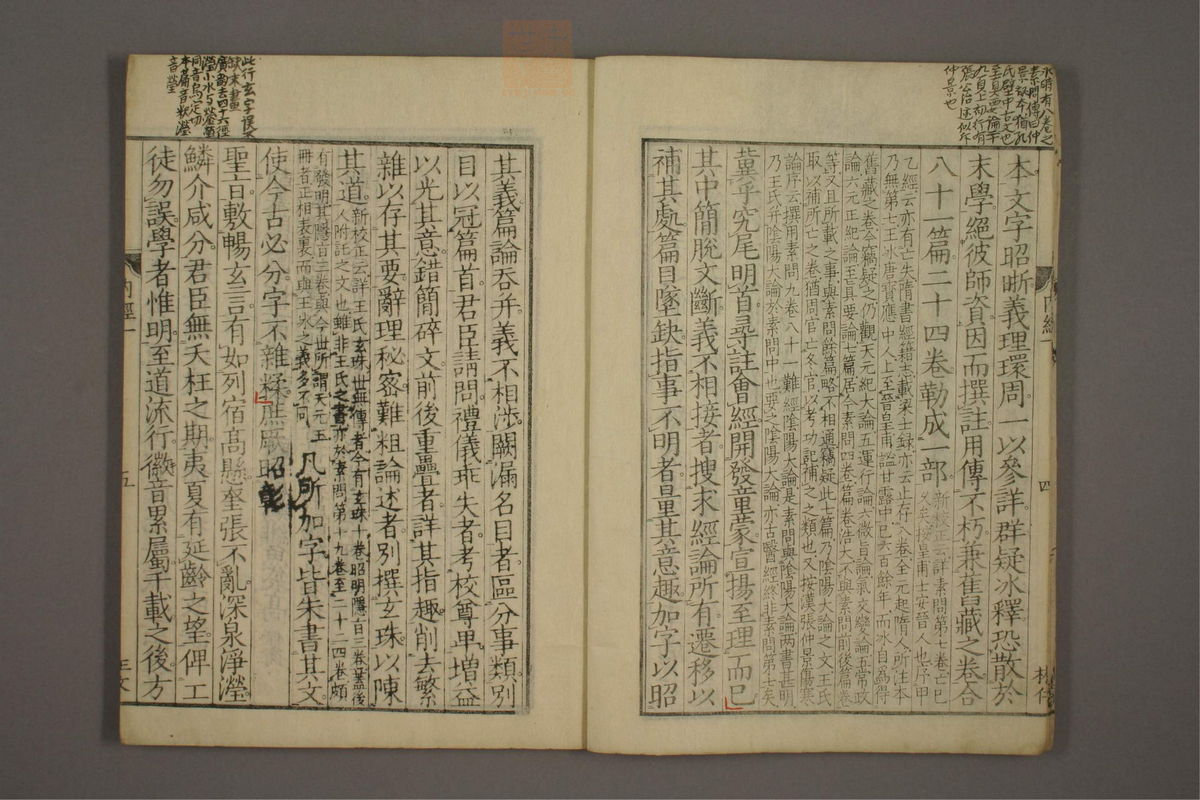 本文字昭晰義理環周一以參詳群疑冰釋恐散於
末學絕彼師資因而撰註用傳不朽兼舊藏之卷合
八十一篇二十四卷勒成一部
新校正云詳素問第七卷亡已
久矣按皇甫士安晉人也序甲
乙經云亦有亡失隋書經籍志載梁七錄亦云止存八卷全元起隋人所注本
乃無第七王冰唐寶應中人上至晉皇甫謐甘露中已六百餘年而冰自為得
舊藏之卷今竊疑之仍觀天元紀大論五運行論六微旨論氣交變論五常政
論六元正紀論至真要論七篇居今素問四卷篇卷浩大不與素問前後篇卷
等又且所載之事與素問餘篇略不相通竊疑此七篇乃陰陽大論之文王氏
取以補所亡之卷猶周官亡冬官以考功記補之之類也又按漢張仲景傷寒
論序云撰用素問九卷八十一難經陰陽大論是素問與陰陽大論两書甚明
乃王氏并陰陽大論於素問中也要之陰陽大論亦古醫經終非素問第七矣
冀乎究尾明首尋註會經開發童蒙宣揚至理而已
其中簡脫文斷義不相接者搜求經論所有遷移以
補其處篇目墜缺指事不明者量其意趣加字以昭
內經一
四
其義篇論吞并義不相涉闕漏名目者區分事類別
目以冠篇首君臣請問禮儀乖失者考校尊卑增益
以光其意錯簡碎文前後重疊者詳其指趣削去繁
雜以存其要辭理秘密難粗論述者別撰玄珠以陳
其道
新校正云詳王氏玄珠世無傳者今有玄珠十卷昭明隱旨三卷蓋後
人附託之文也雖非王氏之書亦於素問第十九卷至二十四卷頗
有發明其隱旨三卷與今世所謂天元玉
冊者正相表裏而與王冰之義多不同
凡所加字皆朱書其文
使今古必分字不雜糅庶厥昭彰
聖旨敷暢玄言有如列宿高懸奎張不亂深泉淨瀅
鱗介咸分君臣無夭枉之期夷夏有延齡之望俾工
徒勿誤學者惟明至道流行徽音累屬千載之後方
內經一
五